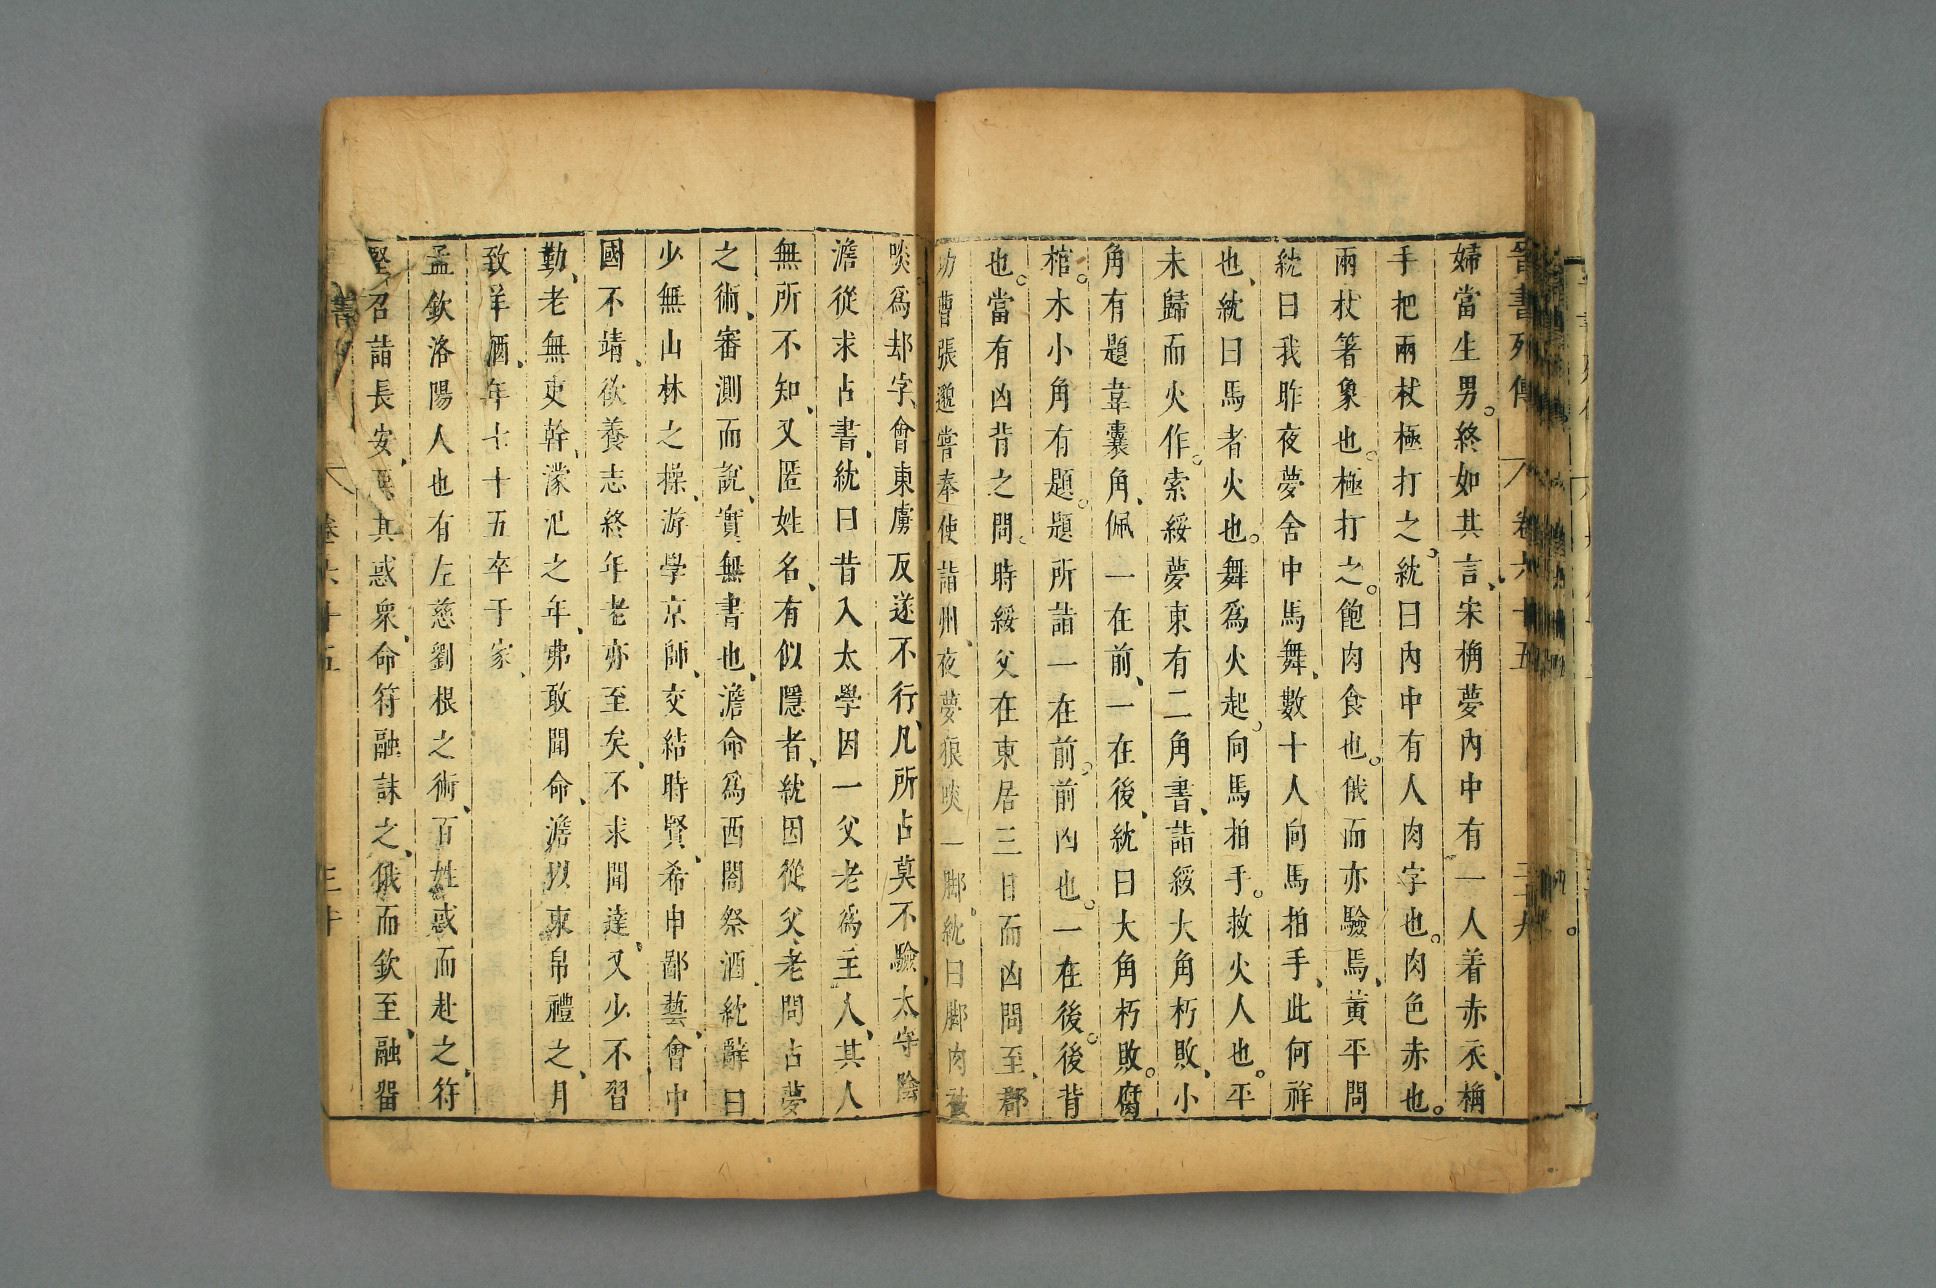 晉書列傳 卷六十五 二十九
婦當生男。終如其言、宋桷夢內中有一人着赤衣、桷
手把兩杖極打之、紞曰內中有人肉字也。肉色赤也。
兩杖箸象也。極打之。飽肉食也。俄而亦驗焉、黃平問
紞曰我昨夜夢舍中馬舞、數十人向馬拍手、此何祥
也、紞曰馬者火也。舞爲火起。向馬拍手。救火人也。平
未歸而火作。索綏夢東有二角書、詣綏大角朽敗、小
角有題韋囊角、佩一在前、一在後、紞曰大角朽敗。腐
棺。木小角有題。題所詣一在前。前凶也。一在後。後背
也。當有凶背之問。時綏父在東居三日而凶問至、郡
功曹張邈嘗奉使詣州、夜夢狼啖一脚、紞曰脚肉被
啖。爲却字、會東虜反遂不行、凡所占莫不驗、太守陰
澹從求占書、紞曰昔入太學因一父老爲主人、其人
無所不知、又匿姓名、有似隱者、紞因從父老問占夢
之術、審測而說、實無書也、澹命爲西閤祭酒、紞辭曰
少無山林之操、游學京師、交結時賢、希申鄙藝、會中
國不靖、欲養志終年老亦至矣、不求聞達、又少不習
勤、老無吏幹、濛汜之年、弗敢聞命、澹以束帛禮之、月
致羊酒、年七十五卒于家、
孟欽洛陽人也有左慈劉根之術、百姓惑而赴之、符
堅、召詣長安、惡其惑衆、命符融誅之、俄而欽至、融留
書 卷六十五 三十